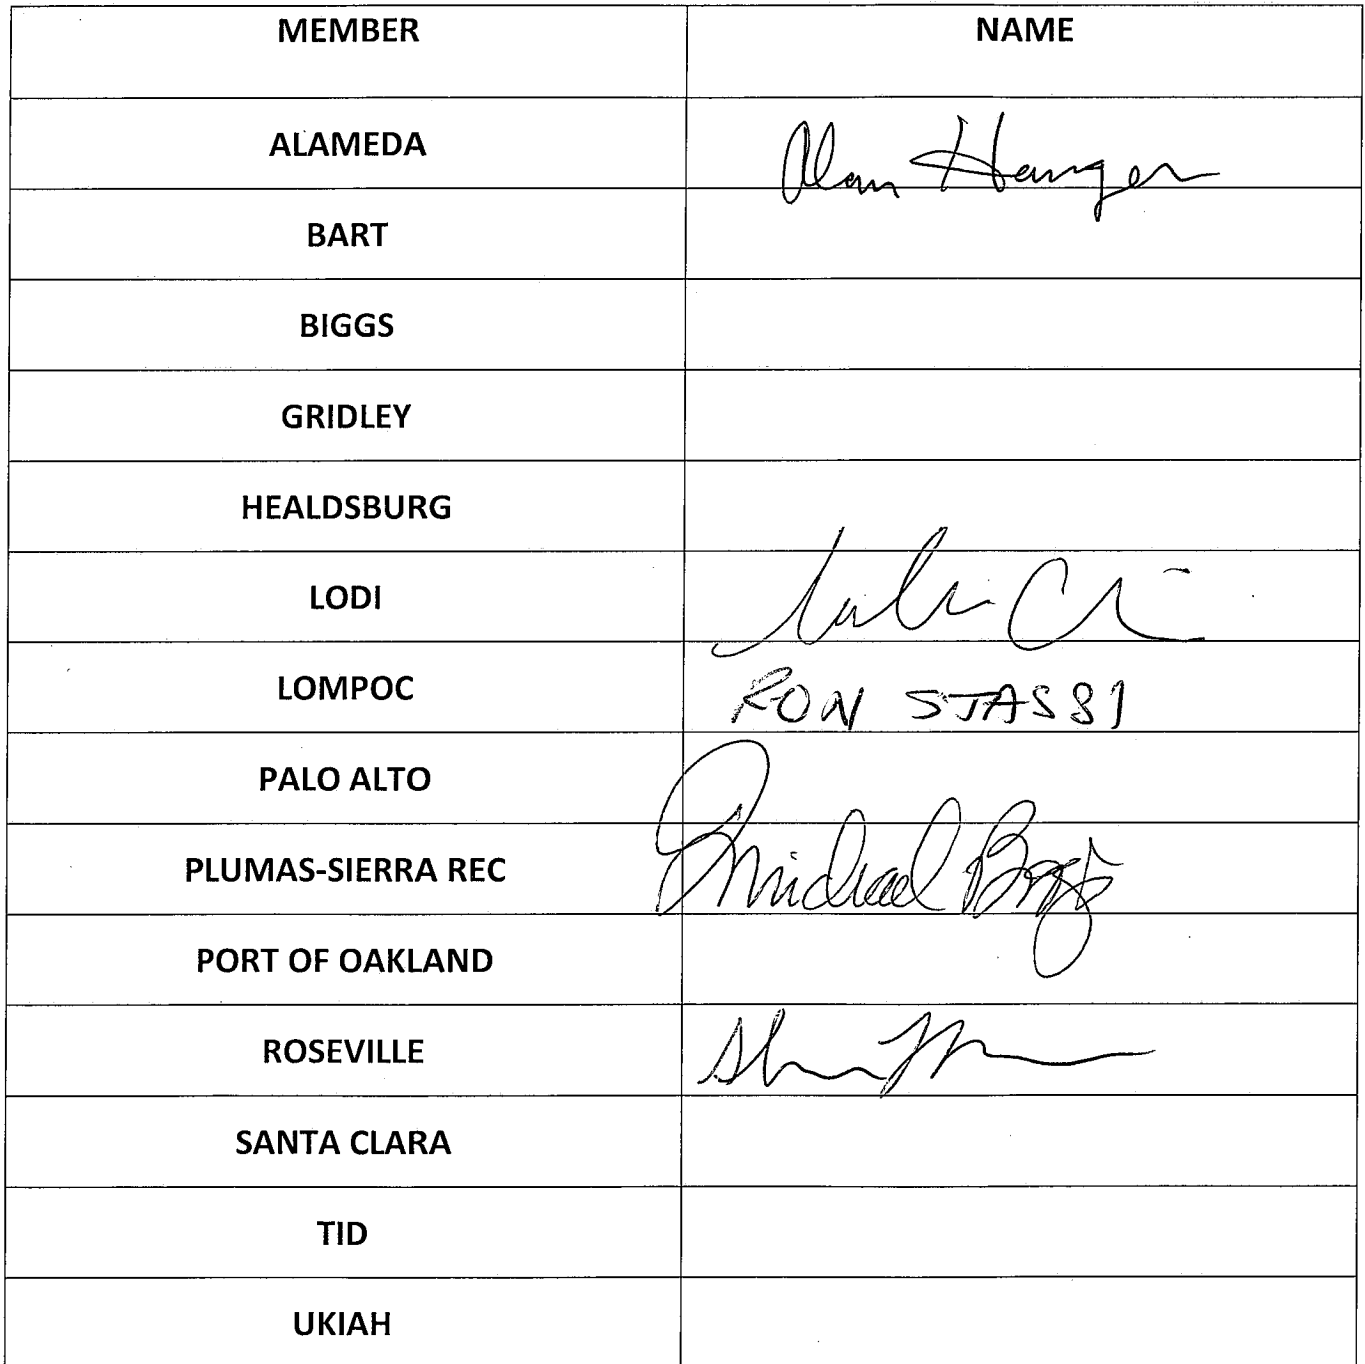 MEMBER NAME
ALAMEDA Alan Hanger
BART
BIGGS
GRIDLEY
HEALDSBURG
LODI
LOMPOC RON STASSI
PALO ALTO
PLUMAS-SIERRA REC Michael
PORT OF OAKLAND
ROSEVILLE
SANTA CLARA
TID
UKIAH